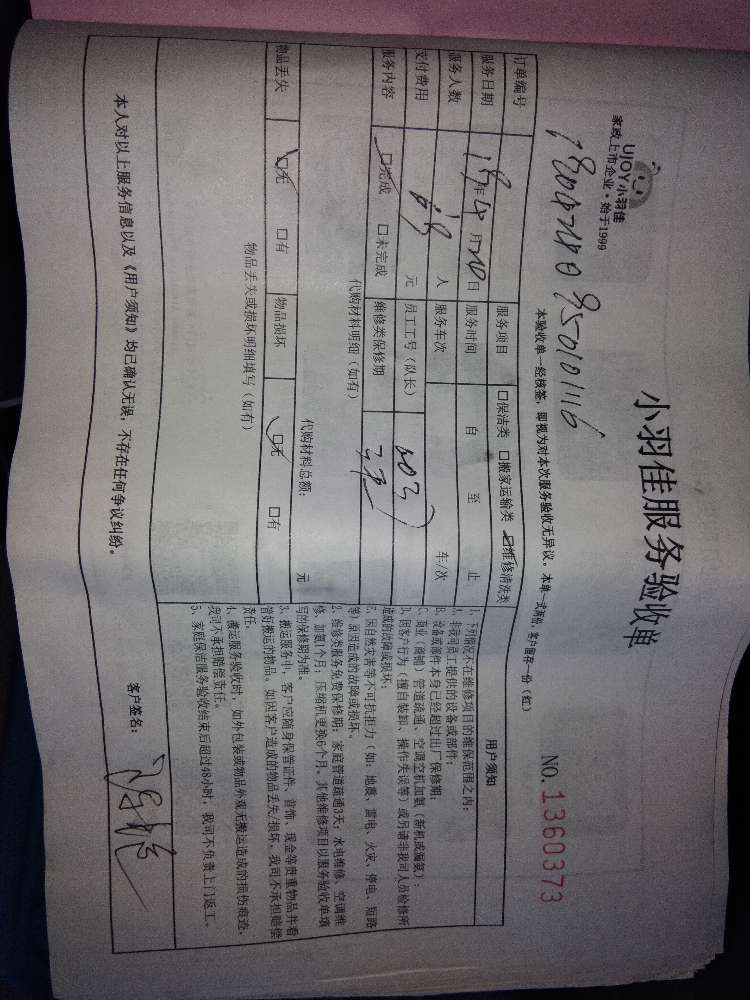 UJOY小羽佳
家政上市企业·始于1999
小羽佳服务验收单
NO.1360373
本验收单一经核签，即视为对本次服务验收无异议。本单一式两份，客户留存一份（红）
订单编号
服务项目 □保洁类 □搬家运输类 ☑维修清洗类
服务日期 19年4月20日 服务时间 自 至 止
服务人数 人 服务车次 车/次
支付费用 元 员工工号（队长）
服务内容 ☑完成 □未完成 维修类保修期
代购材料明细（如有）
代购材料总额： 元
物品丢失 ☑无 □有 物品损坏 ☑无 □有
物品丢失或损坏明细填写（如有）
用户须知
1、下列情况不在维修项目的维保范围之内：
A、非我司员工提供的设备或部件；
B、设备或部件本身已经超过出厂保修期；
C、商业（商铺）管道疏通、空调空机加氨（新机或漏氨）；
D、因客户行为（擅自装卸、操作失误等）或另请非我司人员检修所
造成的故障或损坏；
E、因自然灾害等不可抗拒力（如：地震、雷电、火灾、停电、短路
等）原因造成的故障或损坏。
2、维修类服务免费保修期：家庭管道疏通3天；水电维修、空调维
修、加氨1个月；压缩机更换6个月。其他维修项目以服务验收单填
写的保修期为准。
3、搬运服务中，客户应随身保管证件、首饰、现金等贵重物品并看
管好搬运的物品。如因客户造成的物品丢失/损坏，我司不承担赔偿
责任。
4、搬运服务验收时，如外包装或物品外观无搬运造成的损伤痕迹，
我司不承担赔偿责任。
5、家庭保洁服务验收结束后超过48小时，我司不负责上门返工。
本人对以上服务信息以及《用户须知》均已确认无误，不存在任何争议纠纷。
客户签名：